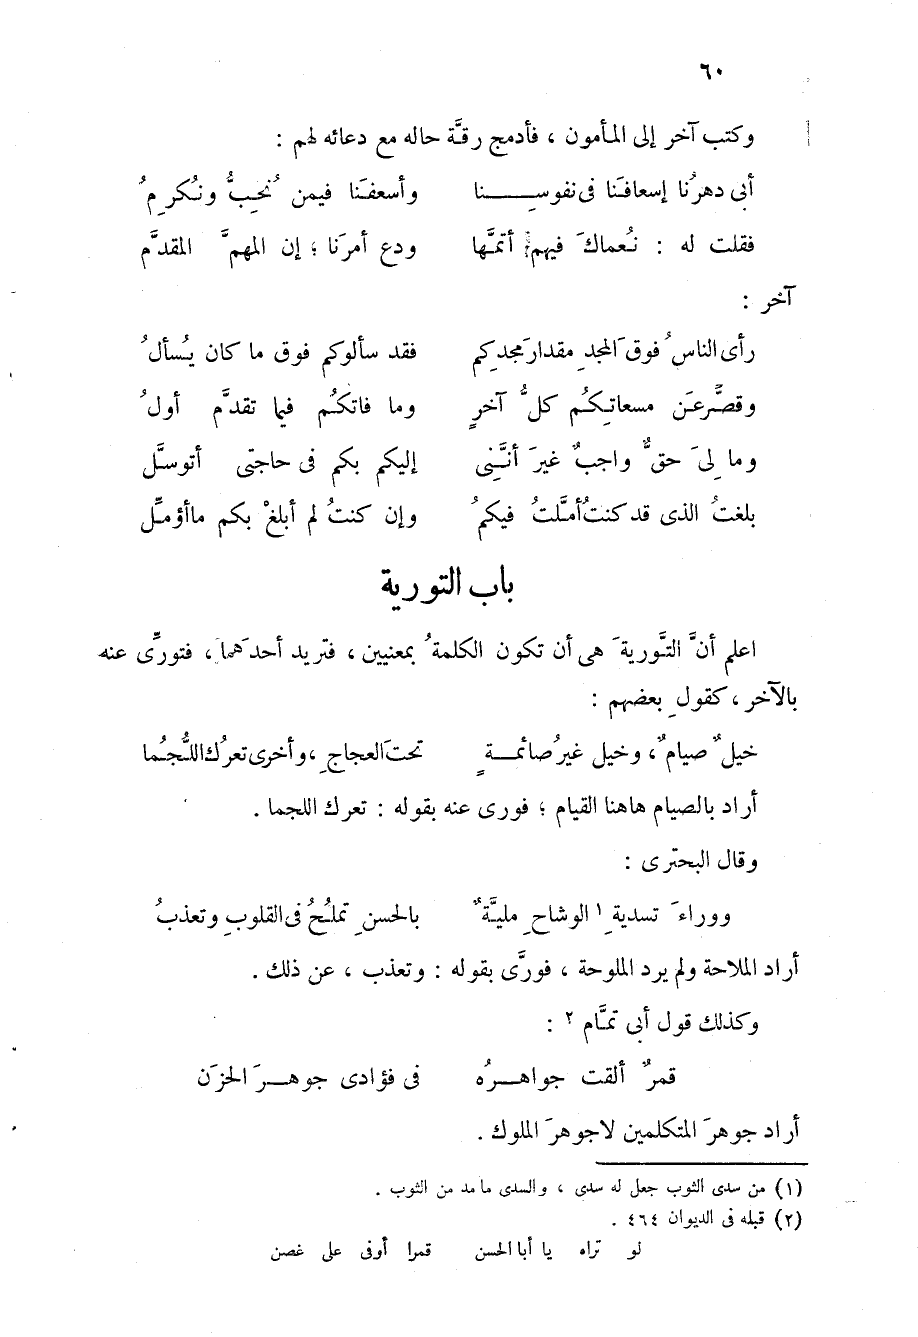 ٦٠
وكتب آخر إلى المأمون ، فأدمج رقَّة حاله مع دعائه لهم :
أبى دهرُنا إسعافَنا فى نفوسِنا وأسعفَنا فيمن نُحبُّ ونُكرِمُ
فقلت له : نُعماكَ فيهم أتمَّها ودع أمرَنا ؛ إن المهمَّ المقدَّم
آخر :
رأى الناسُ فوقَ المجدِ مقدارَ مجدِكم فقد سألوكم فوق ما كان يُسألُ
وقصَّر عَن مسعاتِكُم كلُّ آخرٍ وما فاتكُم فيما تقدَّم أولُ
وما لِىَ حقٌّ واجبٌ غيرَ أنَّنى إليكم بكم فى حاجتى أتوسَّل
بلغتُ الذى قد كنتُ أمَّلتُ فيكمُ وإن كنتُ لم أبلغْ بكم ماأؤمِّل
باب التورية
اعلم أنَّ التَّوريةَ هى أن تكون الكلمةُ بمعنيين ، فتريد أحدَهما ، فتورِّى عنه
بالآخر ، كقولِ بعضهم :
خيلٌ صيامٌ ، وخيل غيرُ صائمةٍ تحتَ العجاجِ ، وأخرى تعرُك اللُّجُما
أراد بالصيام هاهنا القيام ؛ فورى عنه بقوله : تعرك اللجما .
وقال البحترى :
ووراءَ تسديةِ ١ الوشاحِ مليَّةٌ بالحسنِ تملُحُ فى القلوبِ وتعذبُ
أراد الملاحة ولم يرد الملوحة ، فورَّى بقوله : وتعذب ، عن ذلك .
وكذلك قول أبى تمَّام ٢ :
قمرٌ ألقت جواهرُه فى فؤادى جوهرَ الحزَن
أراد جوهرَ المتكلمين لاجوهرَ الملوك .
(١) من سدى الثوب جعل له سدى ، والسدى مامد من الثوب .
(٢) قبله فى الديوان ٤٦٤ .
لو تراه يا أبا الحسن قمرا أوفى على غصن